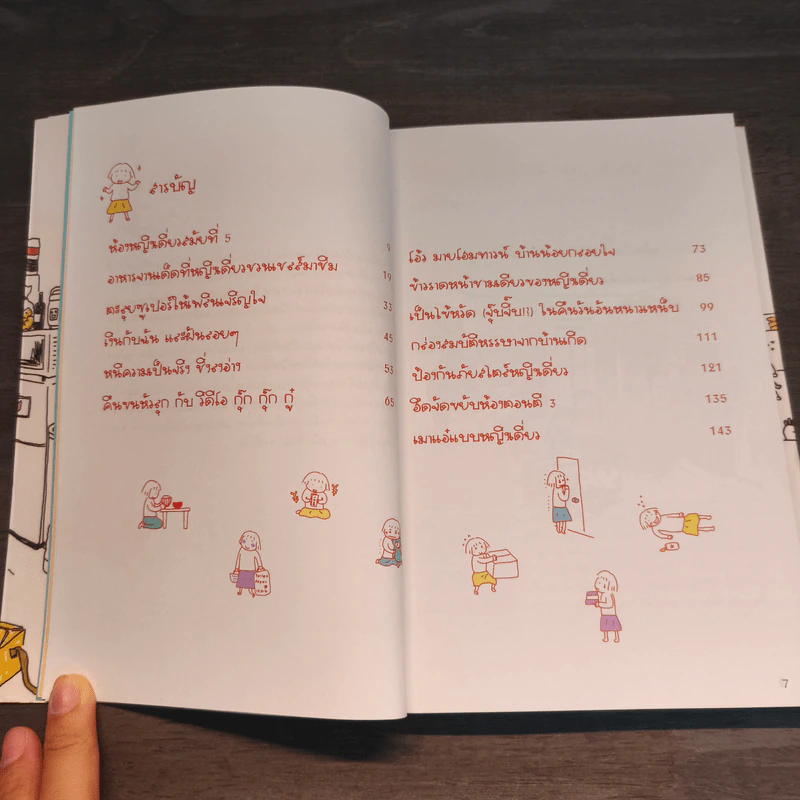 สารบัญ
ห้องหญิงเดี่ยวสมัยที่ 5 9
อาหารจานเด็ดที่หญิงเดี่ยวชวนเชลล์มาชิม 19
ตะลุยซูเปอร์ให้เพลินเจริญใจ 33
เงินกับฉัน และฝันลอยๆ 45
หนีความเป็นจริง ขี่งอ่าง 53
คืนขนหัวลุก กับ วิดีโอ กุ๊ก กุ๊ก กู๋ 65
โอ้ว มายโฮมทาวน์ บ้านน้อยกลอยใจ 73
ข้าวราดหน้าชามเดียวของหญิงเดี่ยว 85
เป็นไข้หวัด (จุ๊บจิ๊บ!?) ในคืนวันอันหนาวเหน็บ 99
กล่องสมบัติหรรษาจากบ้านเกิด 111
ป้องกันภัยสไตล์หญิงเดี่ยว 121
ฮึดจัดขยับห้องตอนตี 3 135
เมาแอ๋แบบหญิงเดี่ยว 143
7